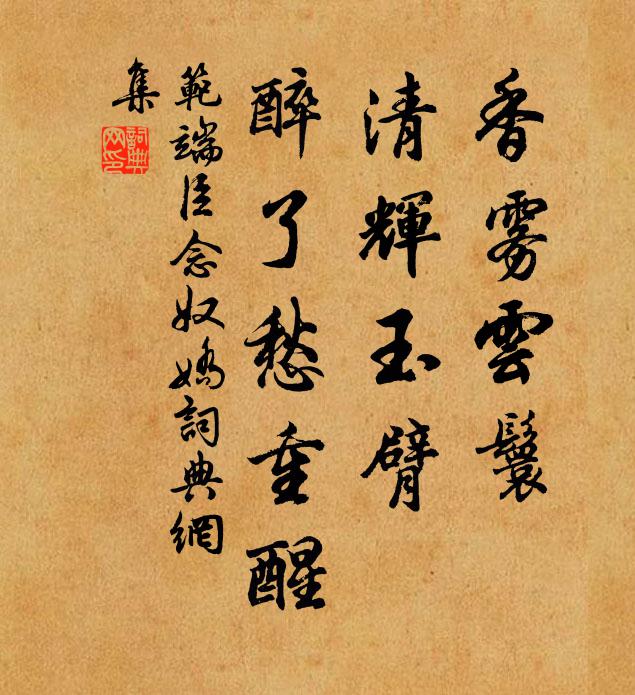 香雾雲鬟
清輝玉臂
醉了愁重醒
範端臣念奴嬌詞典網
集
詞典網印